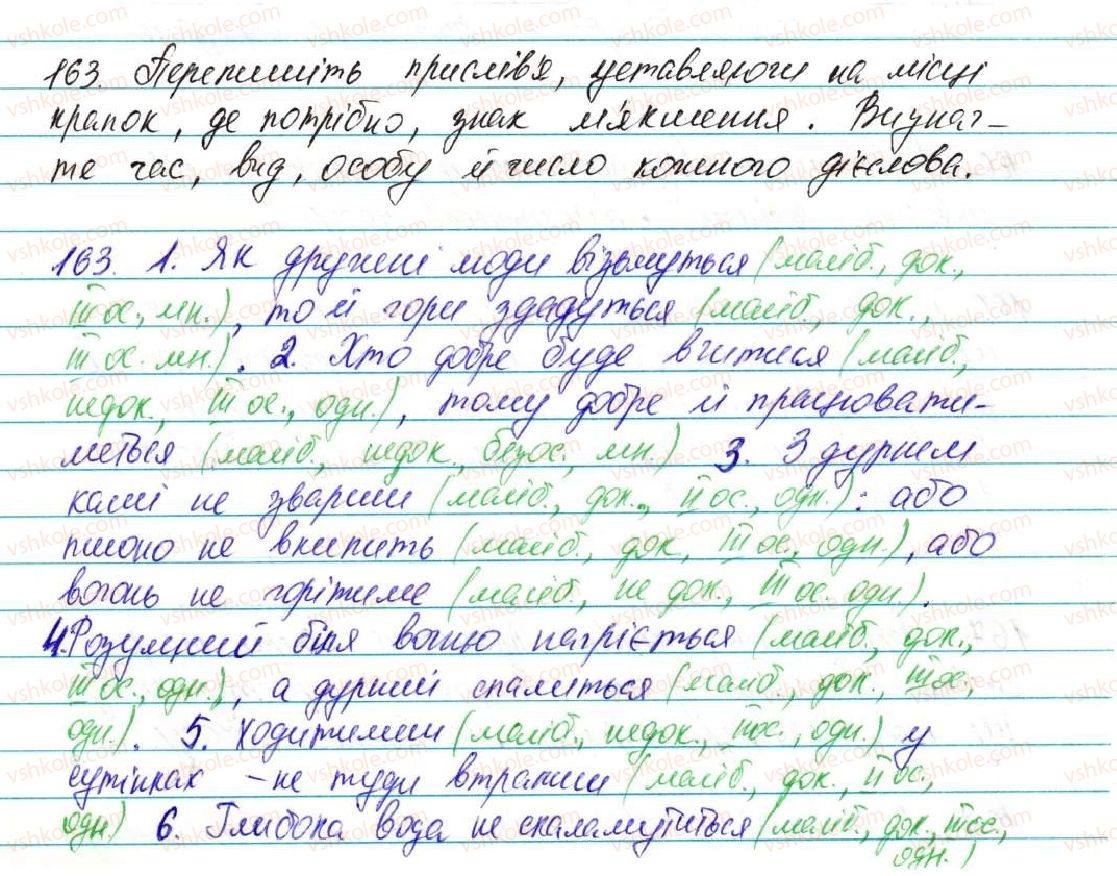 163. Перепишіть прислів'я, уставляючи на місці
крапок, де потрібно, знак м'якшення. Визнач-
те час, вид, особу й число кожного дієслова.
163. 1. Як дружні люди візьмуться (майб., док.,
III ос., мн.), то й гори здадуться (майб., док.,
III ос. мн.). 2. Хто добре буде вчитися (майб.,
недок., III ос., одн.), тому добре й працювати-
меться (майб., недок., безос., мн.) 3. З дурнем
каші не звариш (майб., док., II ос., одн.): або
пшоно не вкипить (майб., док, III ос., одн.), або
вогонь не горітиме (майб., не док., III ос. одн.).
4. Розумний біля вогню нагріється (майб., док.,
III ос., одн.), а дурний спалиться (майб., док., III ос.,
одн.). 5. Ходитимеш (майб., недок., II ос., одн.) у
сутінках – не туди втрапиш (майб., док., II ос.,
одн.) 6. Глибока вода не скаламутиться (майб., док., III ос.,
одн.)